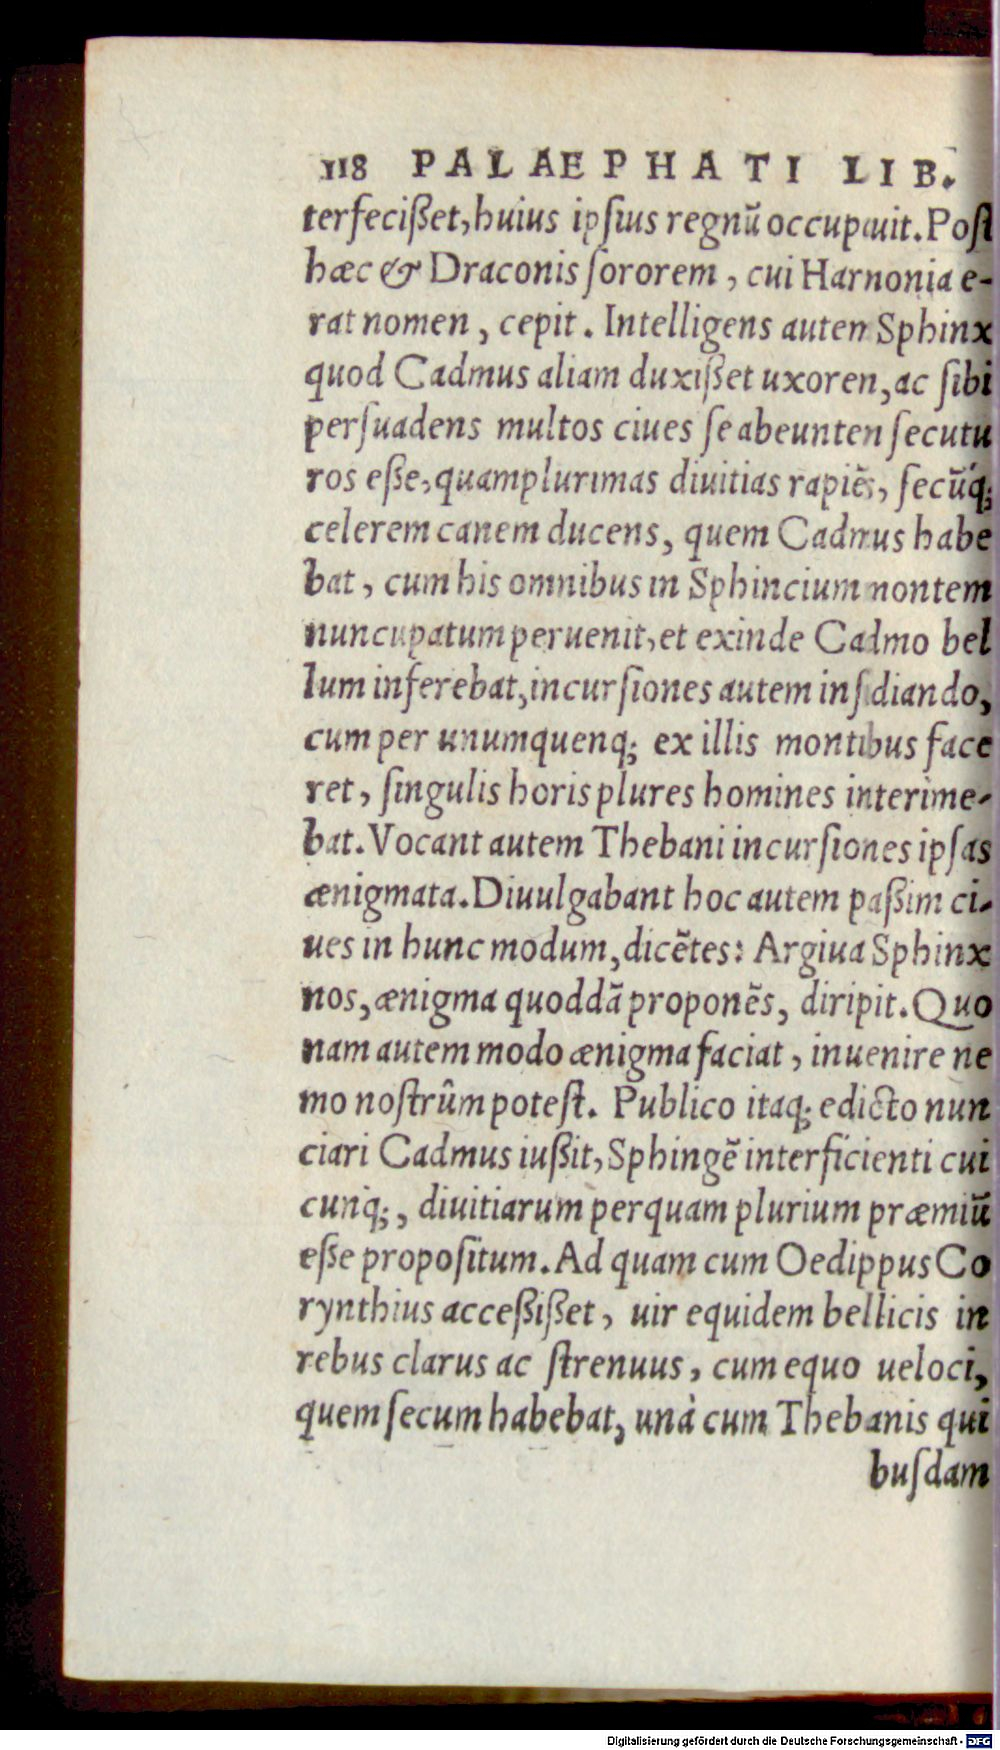 118 PALAEPHATI LIB.
terfecißet, huius ipſius regnũ occupauit. Poſt
hæc & Draconis ſororem, cui Harmonia e-
rat nomen, cepit. Intelligens autem Sphinx
quod Cadmus aliam duxißet uxorem, ac ſibi
perſuadens multos ciues ſe abeuntem ſecutu
ros eße, quamplurimas diuitias rapiẽs, ſecũq́;
celerem canem ducens, quem Cadmus habe
bat, cum his omnibus in Sphincium montem
nuncupatum peruenit, et exinde Cadmo bel
lum inferebat, incurſiones autem inſidiando,
cum per unumquenq; ex illis montibus face
ret, ſingulis horis plures homines interime-
bat. Vocant autem Thebani incurſiones ipſas
ænigmata. Diuulgabant hoc autem paßim ci-
ues in hunc modum, dicẽtes: Argiua Sphinx
nos, ænigma quoddã proponẽs, diripit. Quo
nam autem modo ænigma faciat, inuenire ne
mo noſtrûm poteſt. Publico itaq; edicto nun
ciari Cadmus iußit, Sphingẽ interficienti cui
cunq;, diuitiarum perquam plurium præmiũ
eße propoſitum. Ad quam cum Oedippus Co
rynthius acceßißet, uir equidem bellicis in
rebus clarus ac ſtrenuus, cum equo ueloci,
quem ſecum habebat, unà cum Thebanis qui
buſdam
Digitalisierung gefördert durch die Deutsche Forschungsgemeinschaft - DFG